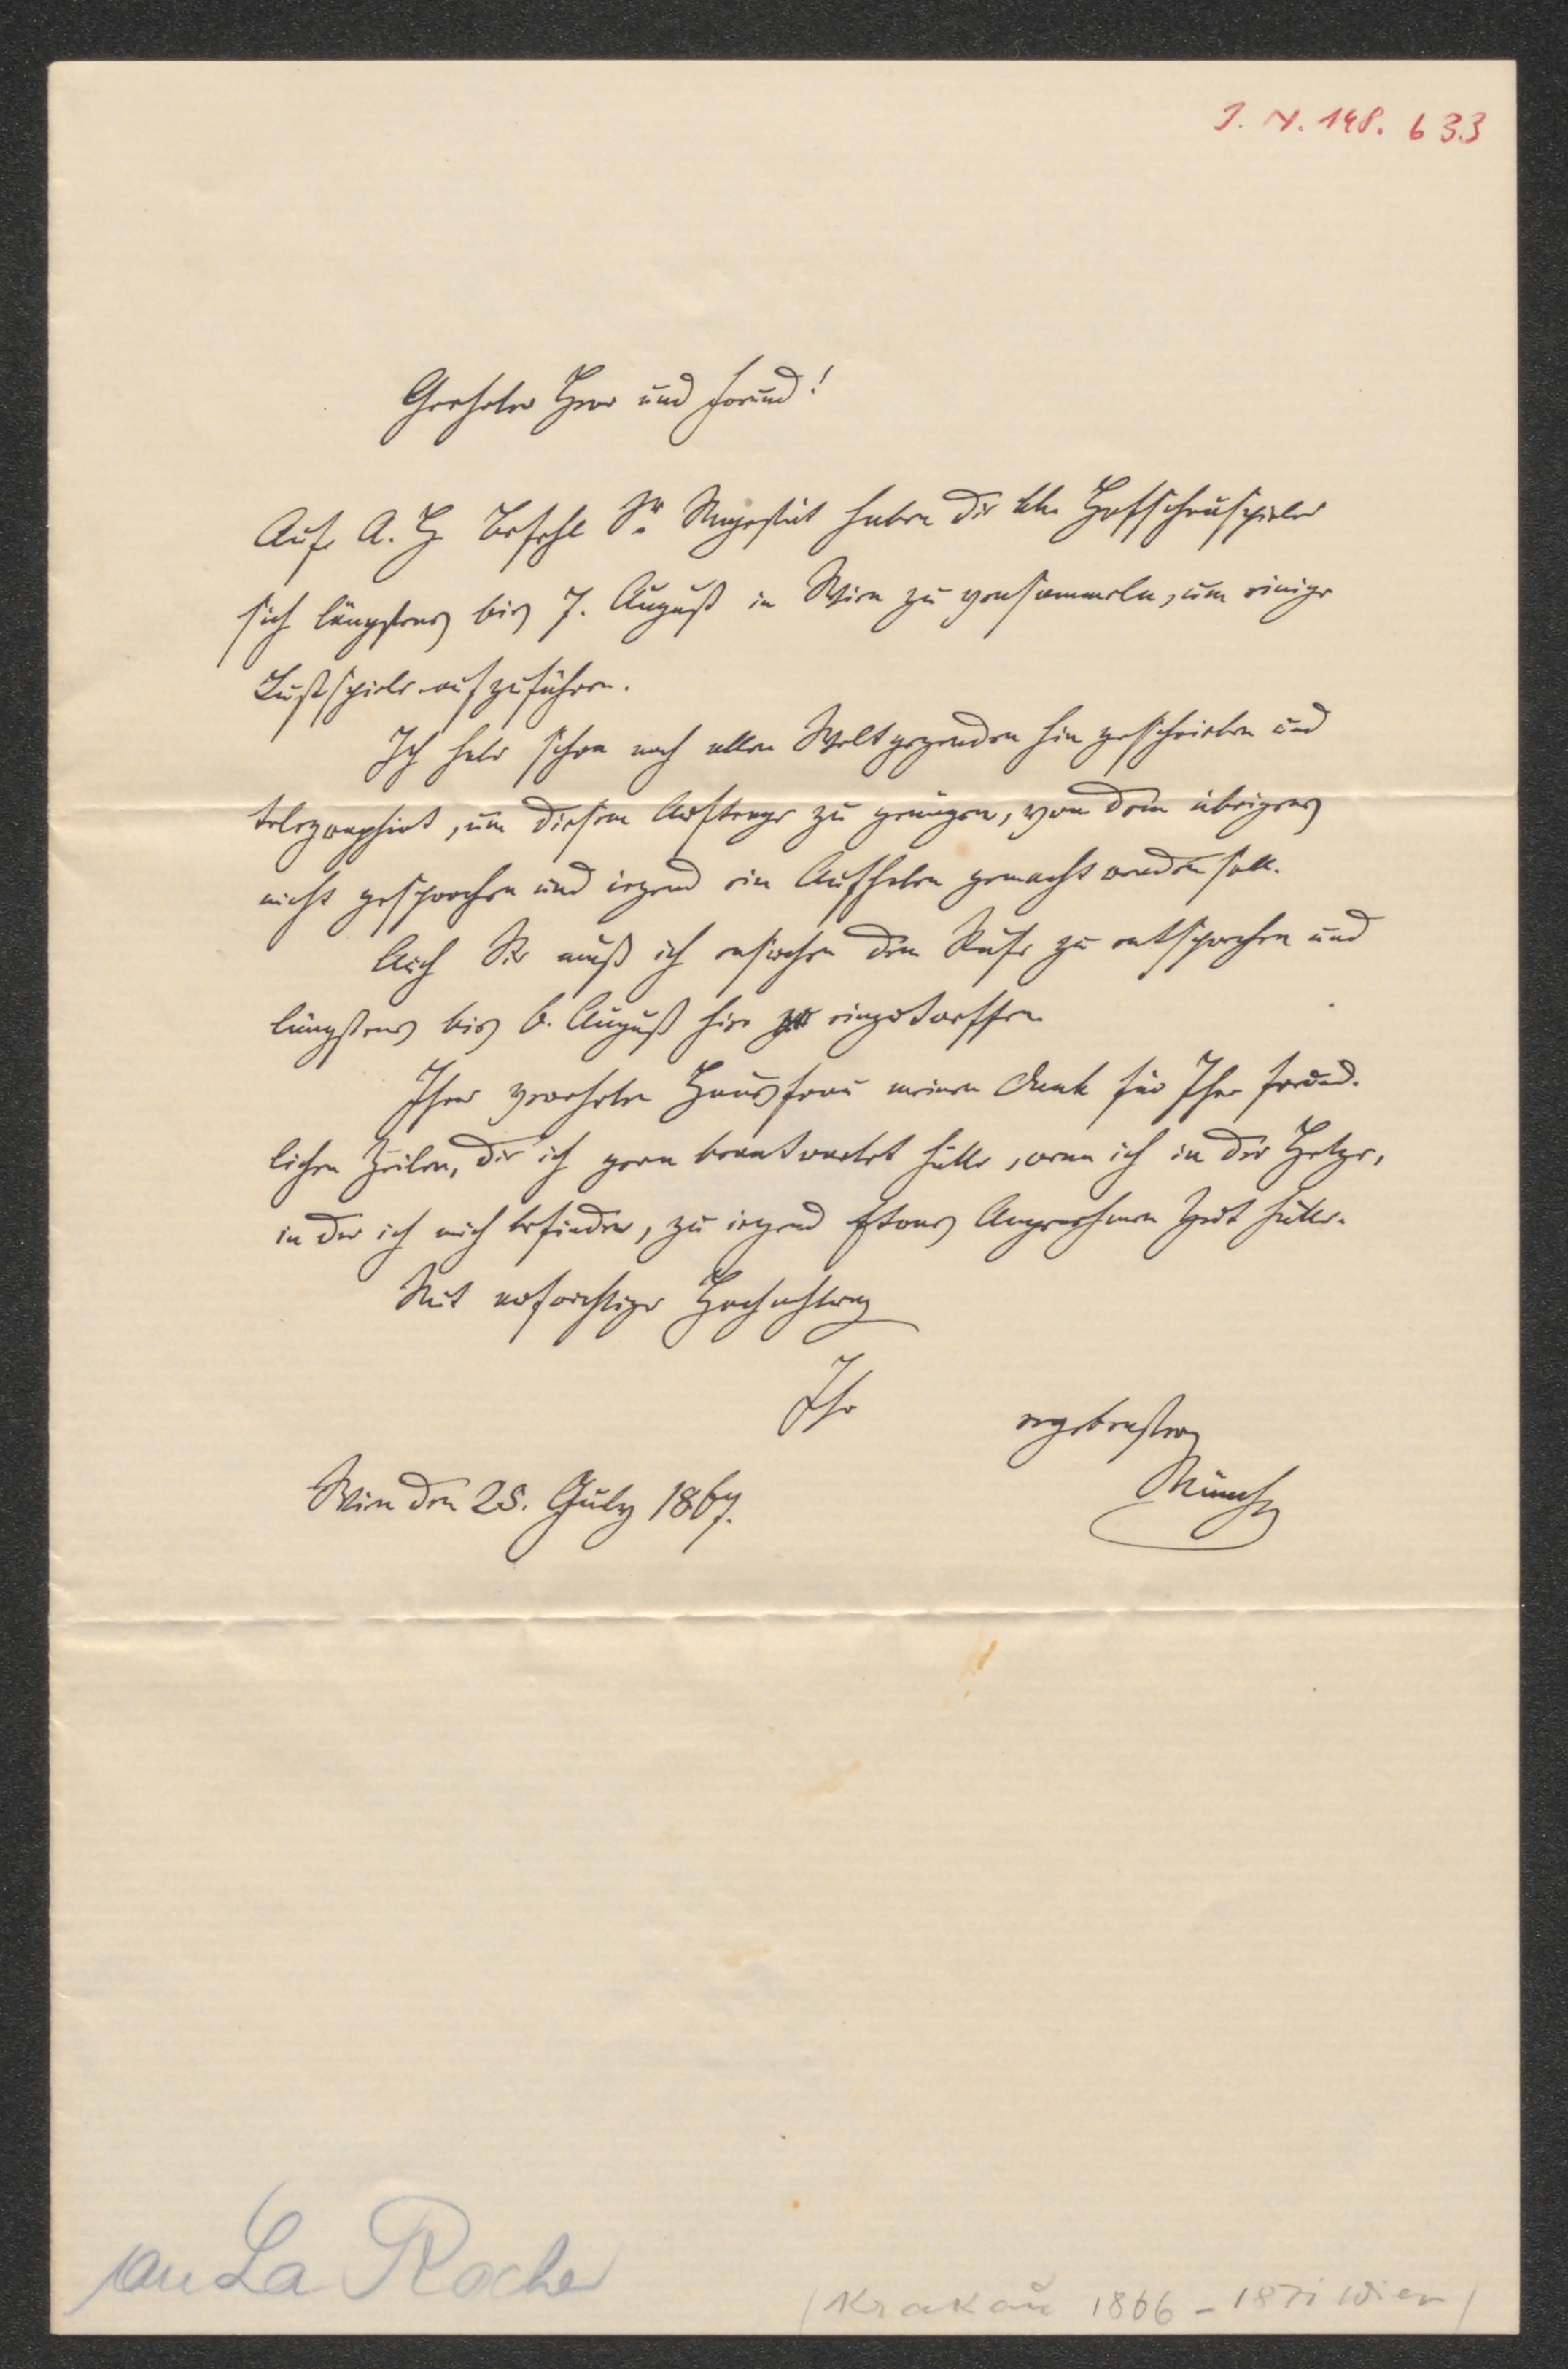 I. N. 148. 633
Geehrter Herr und Freund!
Auf A. H. Befehl Sr. Majestät haben die kk. Hofschauspieler
sich längstens bis 7. August in Wien zu versammeln, um einige
Lustspiele aufzuführen.
Ich habe schon nach allen Weltgegenden hin geschrieben und
telegraphirt, um diesem Auftrage zu genügen, von dem übrigens
nicht gesprochen und irgend ein Aufheben gemacht werden soll.
Auch Sie muß ich ersuchen dem Rufe zu entsprechen und
längstens bis 6. August hier einzutreffen
Ihrer verehrten Hausfrau meinen Dank für Ihre freund-
lichen Zeilen, die ich gern beantwortet hätte, wenn ich in der Hetze,
in der ich mich befinde, zu irgend Etwas Angenehmen Zeit hätte.
Mit aufrichtiger Hochachtung
Ihr ergebenster
Wien den 25. July 1867. Münch
an La Roche
(Krakau 1866 - 1871 Wien)